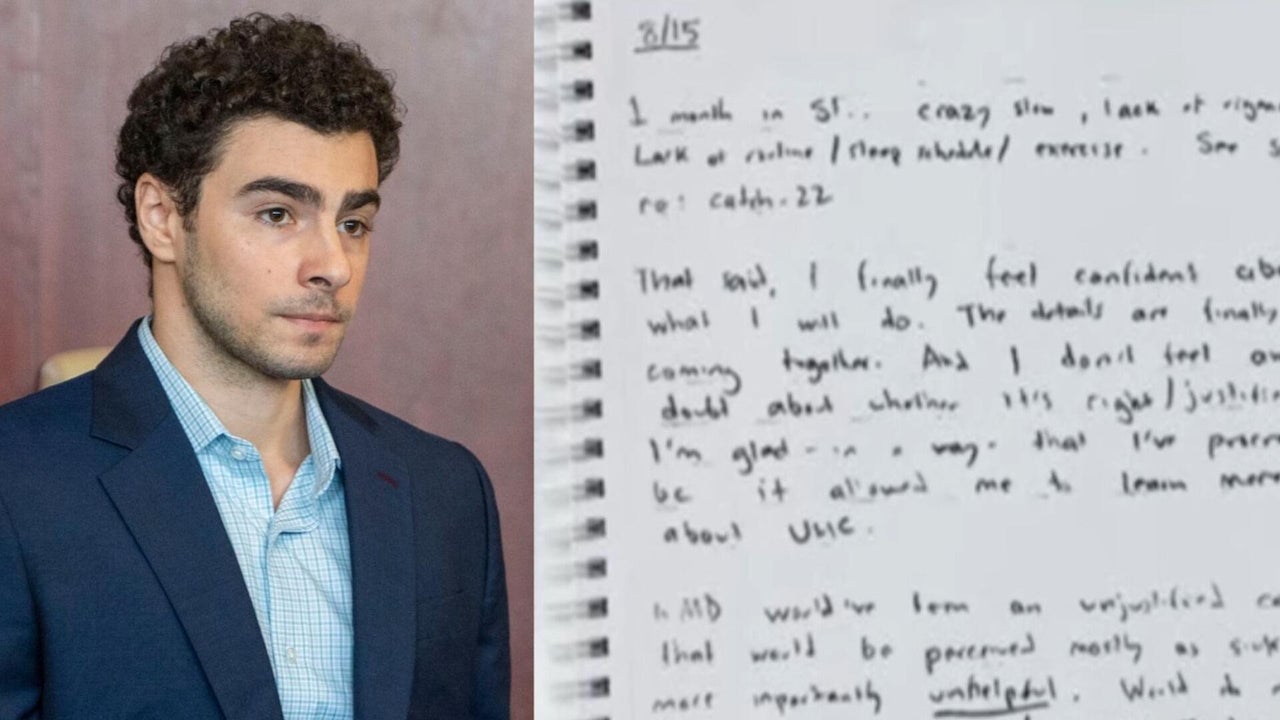 8/15
1 month in SF.. crazy slow, lack of
Lack of routine / sleep schedule / exercise. See
re: catch-22
That said, I finally feel confident
what I will do. The details are finally
coming together. And I don't feel
doubt about whether it's right /
I'm glad - in a way - that I've
bc it allowed me to learn more
about UHC.
MD would've been an unjustified
that would be perceived mostly as
more importantly unhelpful. Would do